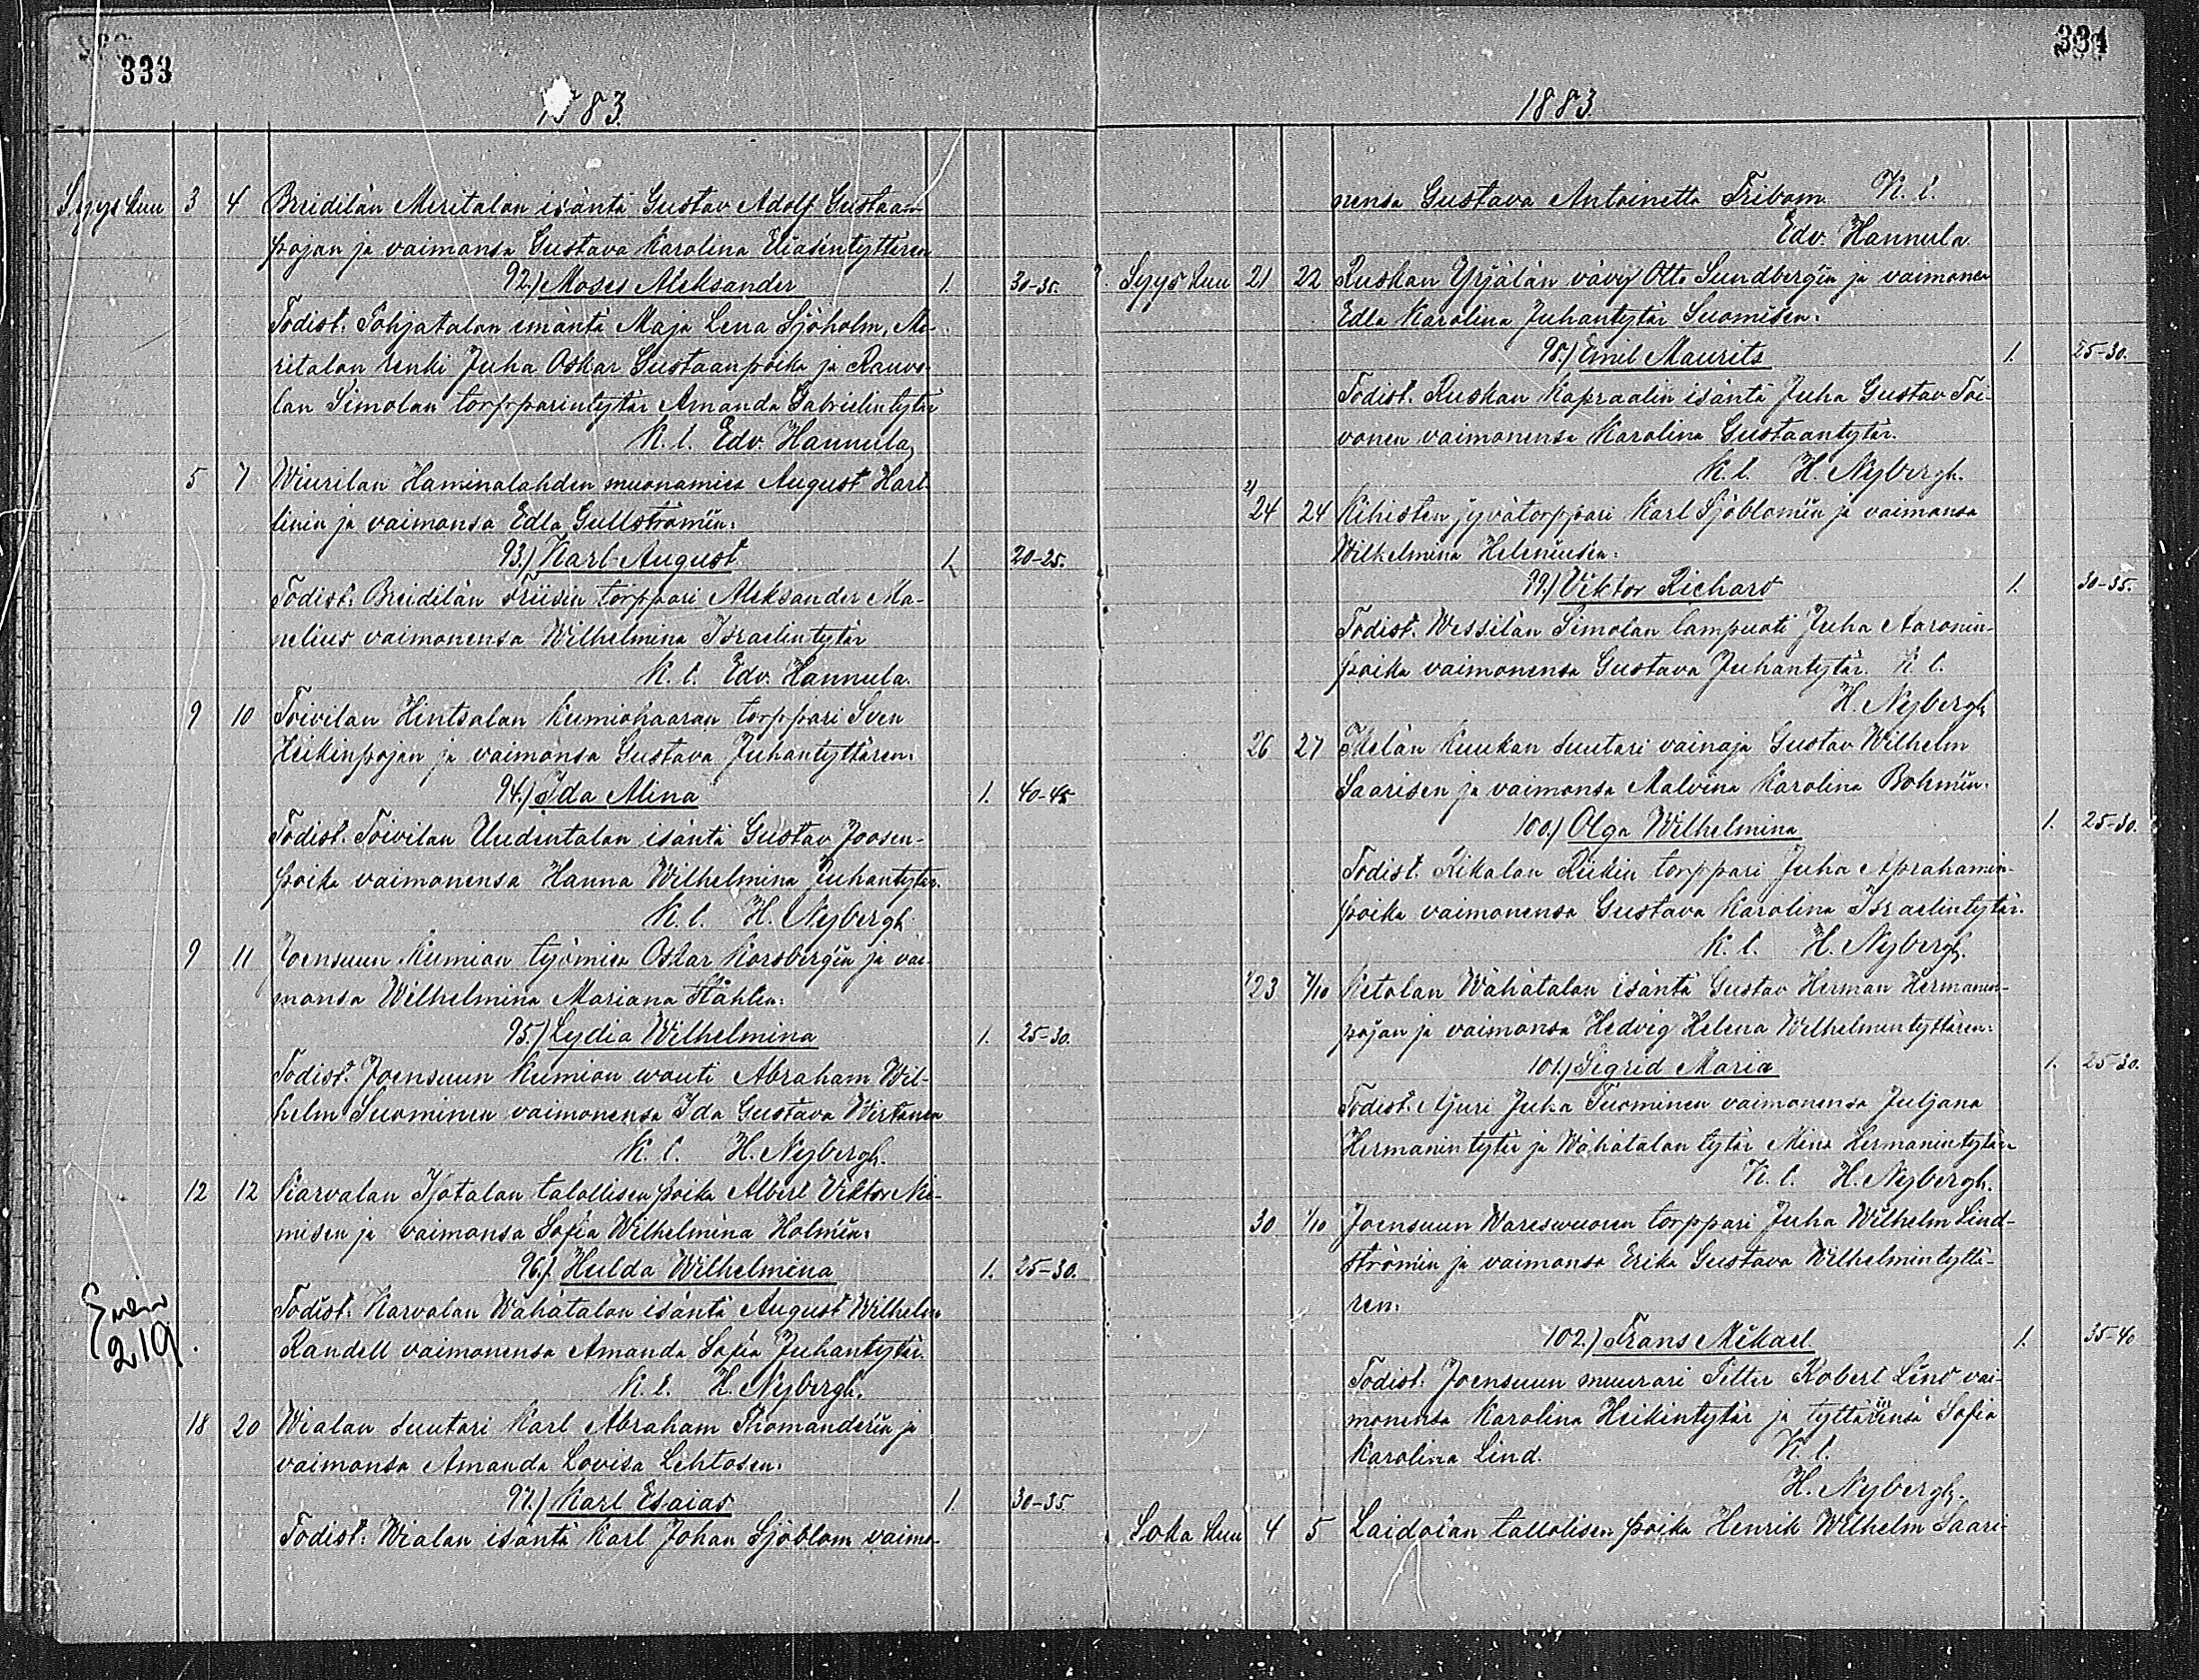 333
1883.
Syyskuu 3 4 Breidilän Meritalon isäntä Gustav Adolf Gustaan-
pojan ja vaimonsa Gustava Karolina Eliasentyttären
92.) Moses Aleksander 1. 30-35.
Todist. Pohjatalon emäntä Maja Lena Sjöholm, Me-
ritalon renki Juha Oskar Gustaanpoika ja Rauvo-
lan Simolan torpparintytär Amanda Gabrielintytär
K. l. Edv. Hannula
5 7 Wiurilan Haminalahden muonamies August Harl-
linin ja vaimonsa Edla Gullströmin:
93.) Karl August 1. 20-25.
Todist. Breidilän Friisin torppari Aleksander Ma-
nelius vaimonensa Wilhelmina Israelintytär
K. l. Edv. Hannula.
9 10 Toivilan Hintsalan Kumiohaaran torppari Sven
Heikinpojan ja vaimonsa Gustava Juhantyttären:
94.) Ida Alina 1. 40-45
Todist. Toivilan Uudentalon isäntä Gustav Joosen-
poika vaimonensa Hanna Wilhelmina Juhantytär.
K. l. H. Nybergh
9 11 Joensuun Kumion työmies Oskar Korsbergin ja vai-
monsa Wilhelmina Mariana Ståhlin:
95.) Lydia Wilhelmina 1. 25-30.
Todist. Joensuun Kumion wouti Abraham Wil-
helm Suominen vaimonensa Ida Gustava Wirtanen
K. l. H. Nybergh.
12 12 Karvalan Isotalon talollisen poika Albert Viktor Nie-
misen ja vaimonsa Sofia Wilhelmina Holmin:
96.) Hulda Wilhelmina 1. 25-30.
Todist. Karvalan Wähätalon isäntä August Wilhelm
Randell vaimonensa Amanda Sofia Juhantytär.
219.
K. l. H. Nybergh.
18 20 Wialan suutari Karl Abraham Thomanderin ja
vaimonsa Amanda Lovisa Lehtosen:
97.) Karl Esaias 1. 30-35
Todist. Wialan isäntä Karl Johan Sjöblom vaimo-
334
1883.
nensa Gustava Antoinetta Fribom. K. l.
Edv. Hannula
Syyskuu 21 22 Ruskan Yrjälän vävy Otto Sundbergin ja vaimonsa
Edla Karolina Juhantytär Suomisen:
98.) Emil Maurits 1. 25-30.
Todist. Ruskan Kapraalin isäntä Juha Gustav Toi-
vonen vaimonensa Karolina Gustaantytär.
K. l. H. Nybergh.
24 24 Kihisten jyvätorppari Karl Sjöblomin ja vaimonsa
Wilhelmina Heleniusen:
99.) Viktor Richard 1. 30-35.
Todist. Wessilän Simolan lampuoti Juha Aaronin-
poika vaimonensa Gustava Juhantytär. K. l.
H. Nybergh
26 27 Ihelän Kuukan suutari vainaja Gustav Wilhelm
Saarisen ja vaimonsa Malvina Karolina Bohmin:
100.) Olga Wilhelmina 1. 25-30.
Todist. Rikalan Riikin torppari Juha Aprahamin-
poika vaimonensa Gustava Karolina Israelintytär.
K. l. H. Nybergh.
23 1/10 Ketolan Wähätalon isäntä Gustav Herman Hermanin-
pojan ja vaimonsa Hedvig Helena Wilhelmintyttären:
101.) Sigrid Maria 1. 25-30.
Todist. Ajuri Juha Tuominen vaimonensa Juljana
Hermanintytär ja Wähätalon tytär Mina Hermanintytär
K. l. H. Nybergh.
30 1/10 Joensuun Wareswuoren torppari Juha Wilhelm Lind-
strömin ja vaimonsa Erika Gustava Wilhelmintyttä-
ren:
102.) Frans Mikael 1. 35-40
Todist. Joensuun muurari Petter Robert Lind vai-
monensa Karolina Heikintytär ja tyttärinensä Sofia
Karolina Lind. K. l.
H. Nybergh.
Lokakuu 4 5 Laidoisan tallolisen poika Henrik Wilhelm Saari-